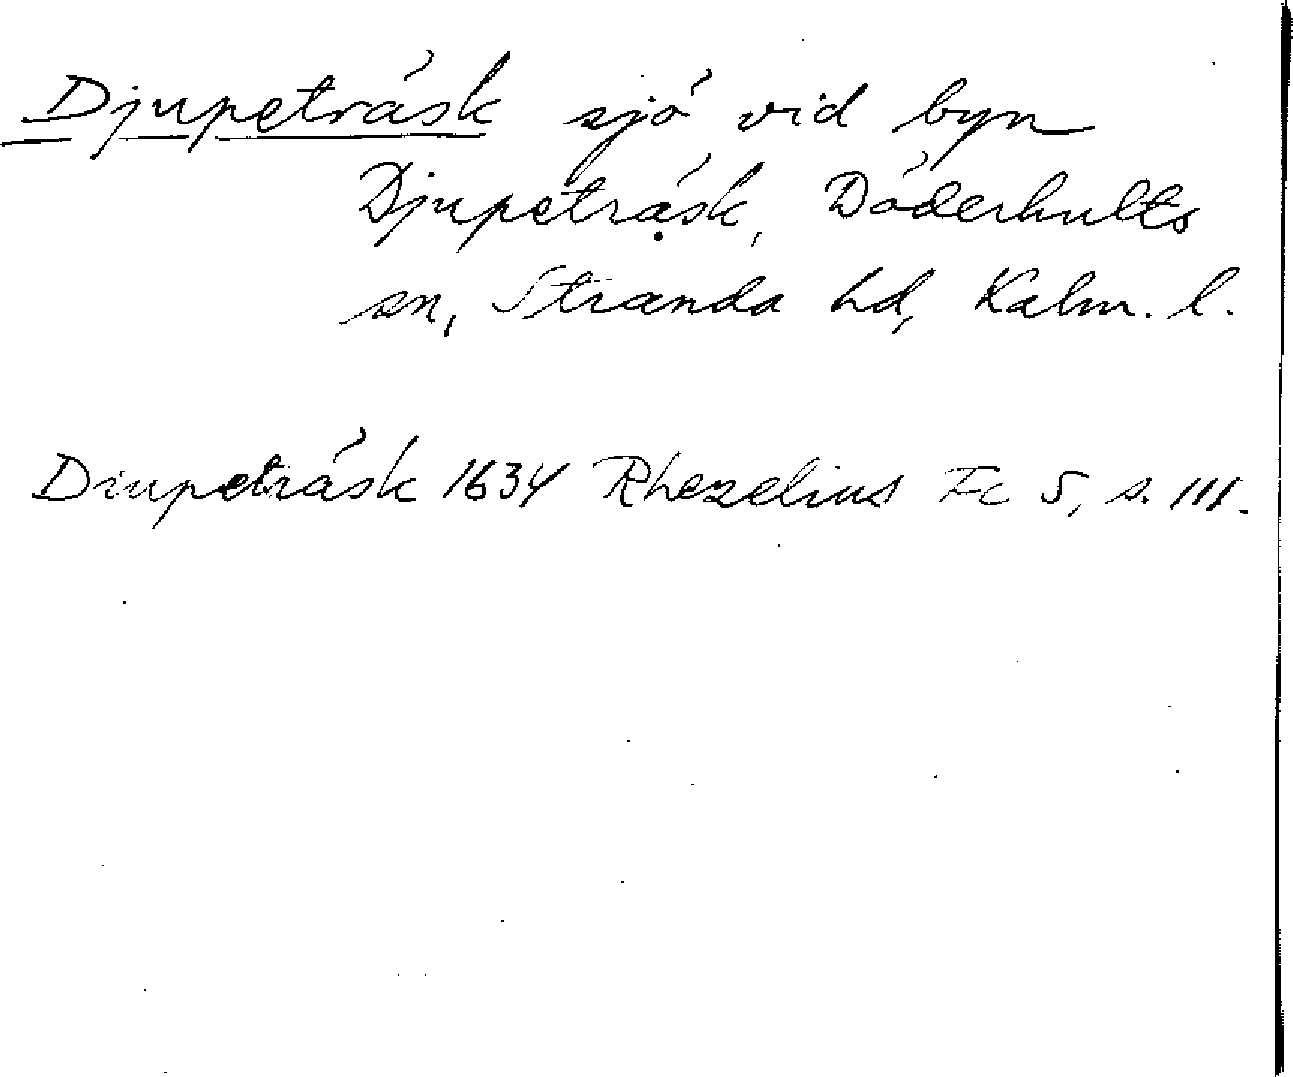 Djupeträsk sjö vid byn
Djupeträsk, Döderhults
sn, Stranda hd, Kalm. l.
Diupeträsk 1634 Rhezelius Fc 5, s. 111.